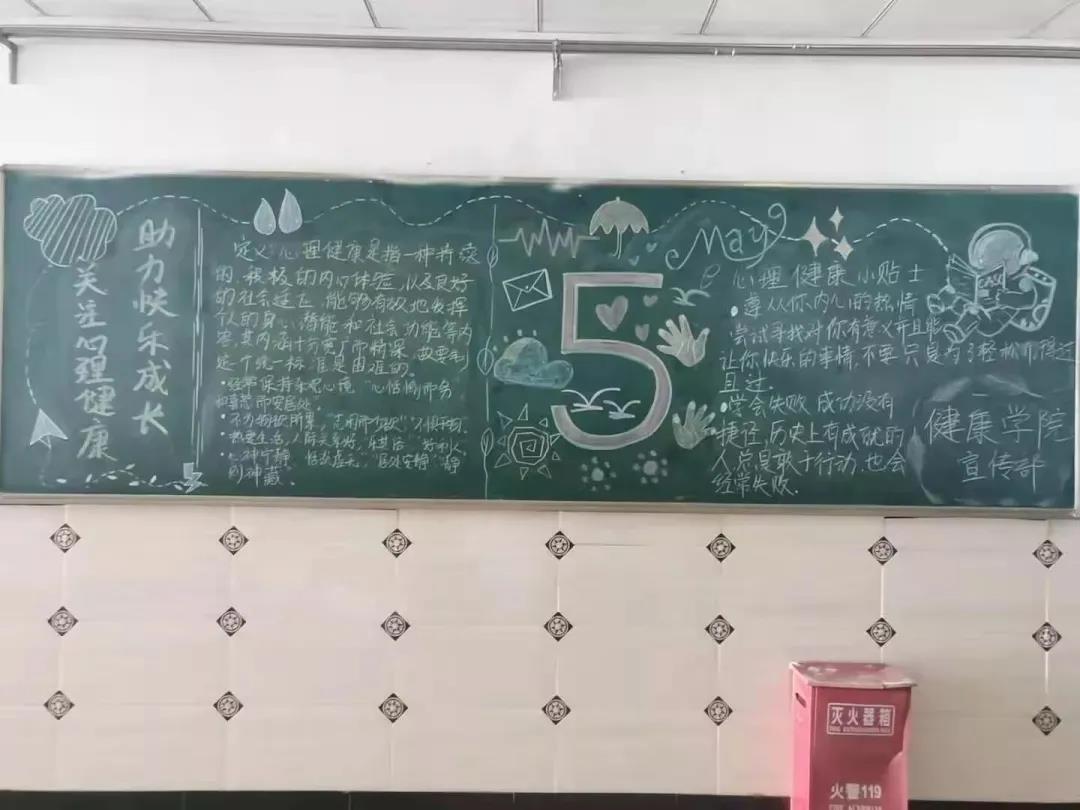 助力快乐成长
关注心理健康
定义：心理健康是指一种持续
的、积极的内心体验，以及良好
的社会适应，能够有效地发挥
个人的身心潜能和社会功能等内
容，其内涵十分宽广而精深，
这个统一标准是困难的。
·经常保持乐观心境
·热爱生活，人际关系好
·心神宁静，恬淡虚无，“居处安静”静
则神藏。
May
5
心理健康小贴士
·尊从你内心的热情
尝试寻找对你有意义并且能
让你快乐的事情，不要只是为了轻松而得过
且过.
·学会失败 成功没有
捷径，历史上有成就的
人总是敢于行动,也会
经常失败.
健康学院
宣传部
灭火器箱
FIRE EXTINGUISHER BOX
火警119